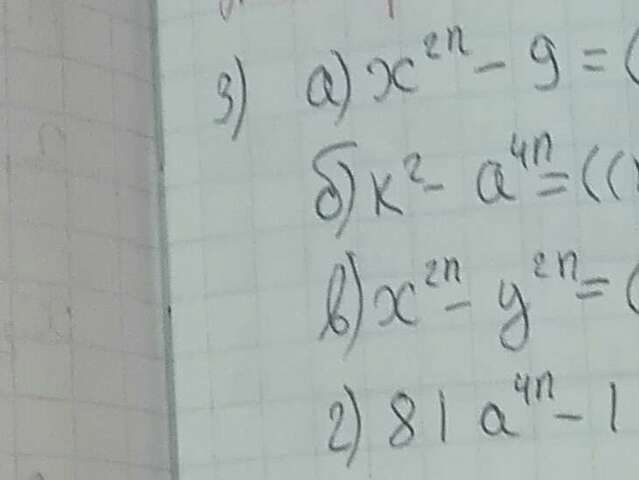 3) а) x²ⁿ - 9 = (
б) к² - a⁴ⁿ = ((
в) x²ⁿ - y²ⁿ = (
г) 81 a⁴ⁿ - 1